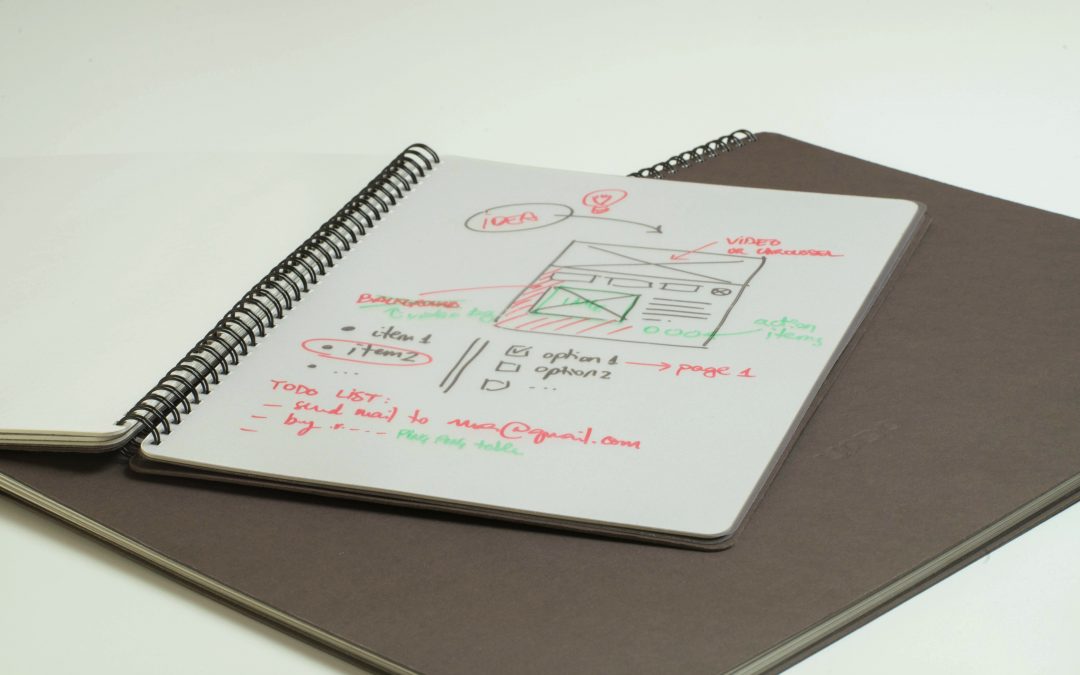 IDEA
VIDEO
OR CAROUSEL
BACKGROUND
action
items
item 1
item 2
...
option 1 → page 1
option 2
...
TODO LIST:
– send mail to @gmail.com
– by
Ping Pong table
–